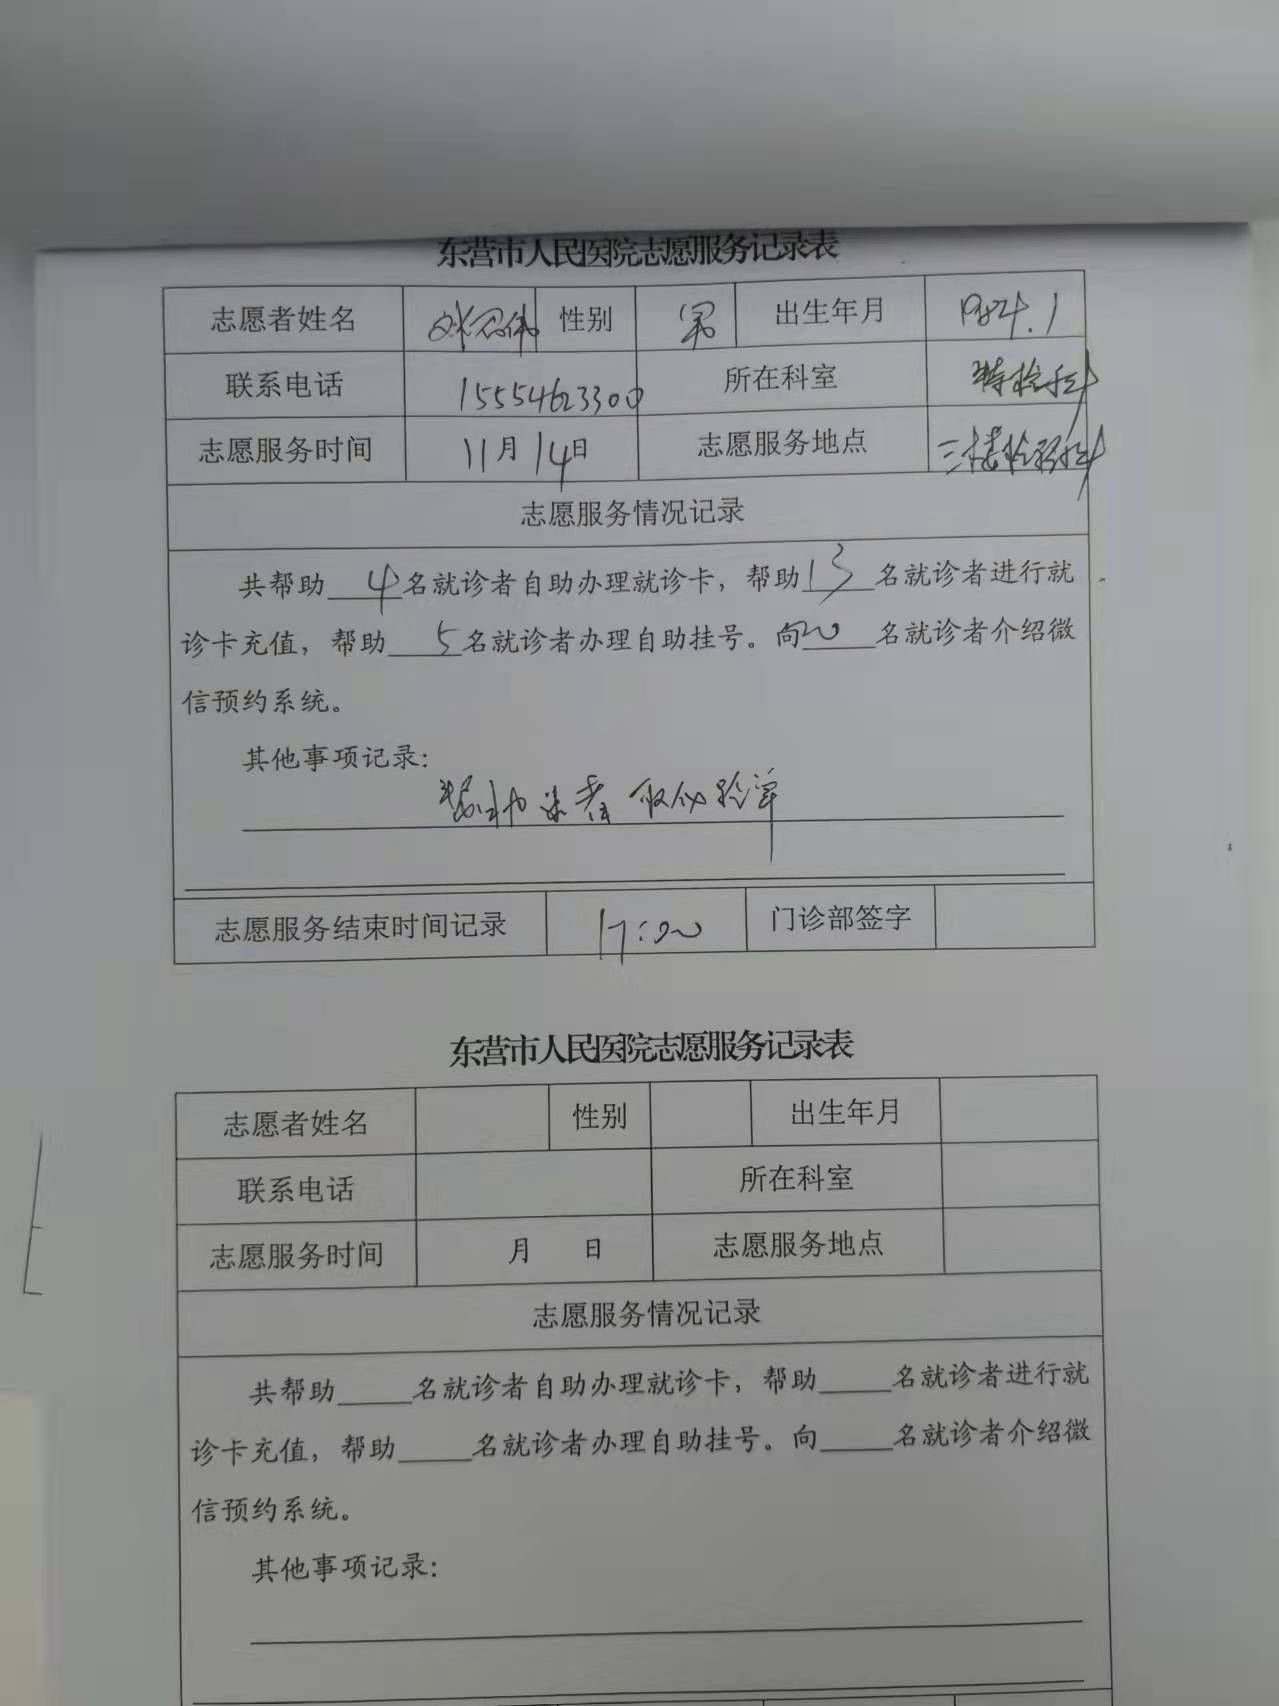 东营市人民医院志愿服务记录表
志愿者姓名 性别 男 出生年月 1984.1
联系电话 15554623300 所在科室 特检科
志愿服务时间 11月14日 志愿服务地点 三楼检验科
志愿服务情况记录
共帮助4名就诊者自助办理就诊卡，帮助13名就诊者进行就
诊卡充值，帮助5名就诊者办理自助挂号。向名就诊者介绍微
信预约系统。
其他事项记录：
帮助患者取化验单
志愿服务结束时间记录 17:00 门诊部签字
东营市人民医院志愿服务记录表
志愿者姓名 性别 出生年月
联系电话 所在科室
志愿服务时间 月 日 志愿服务地点
志愿服务情况记录
共帮助_____名就诊者自助办理就诊卡，帮助_____名就诊者进行就
诊卡充值，帮助_____名就诊者办理自助挂号。向_____名就诊者介绍微
信预约系统。
其他事项记录：